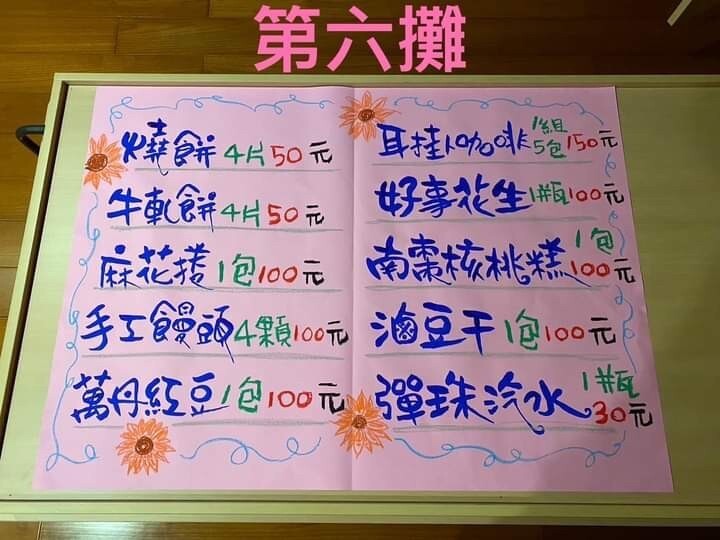 第六攤
燒餅 4片50元
牛軋餅 4片50元
麻花捲 1包100元
手工饅頭 4顆100元
萬丹紅豆 1包100元
耳挂咖啡 1組5包150元
好事花生 1瓶100元
南棗核桃糕 1包100元
滷豆干 1包100元
彈珠汽水 1瓶30元